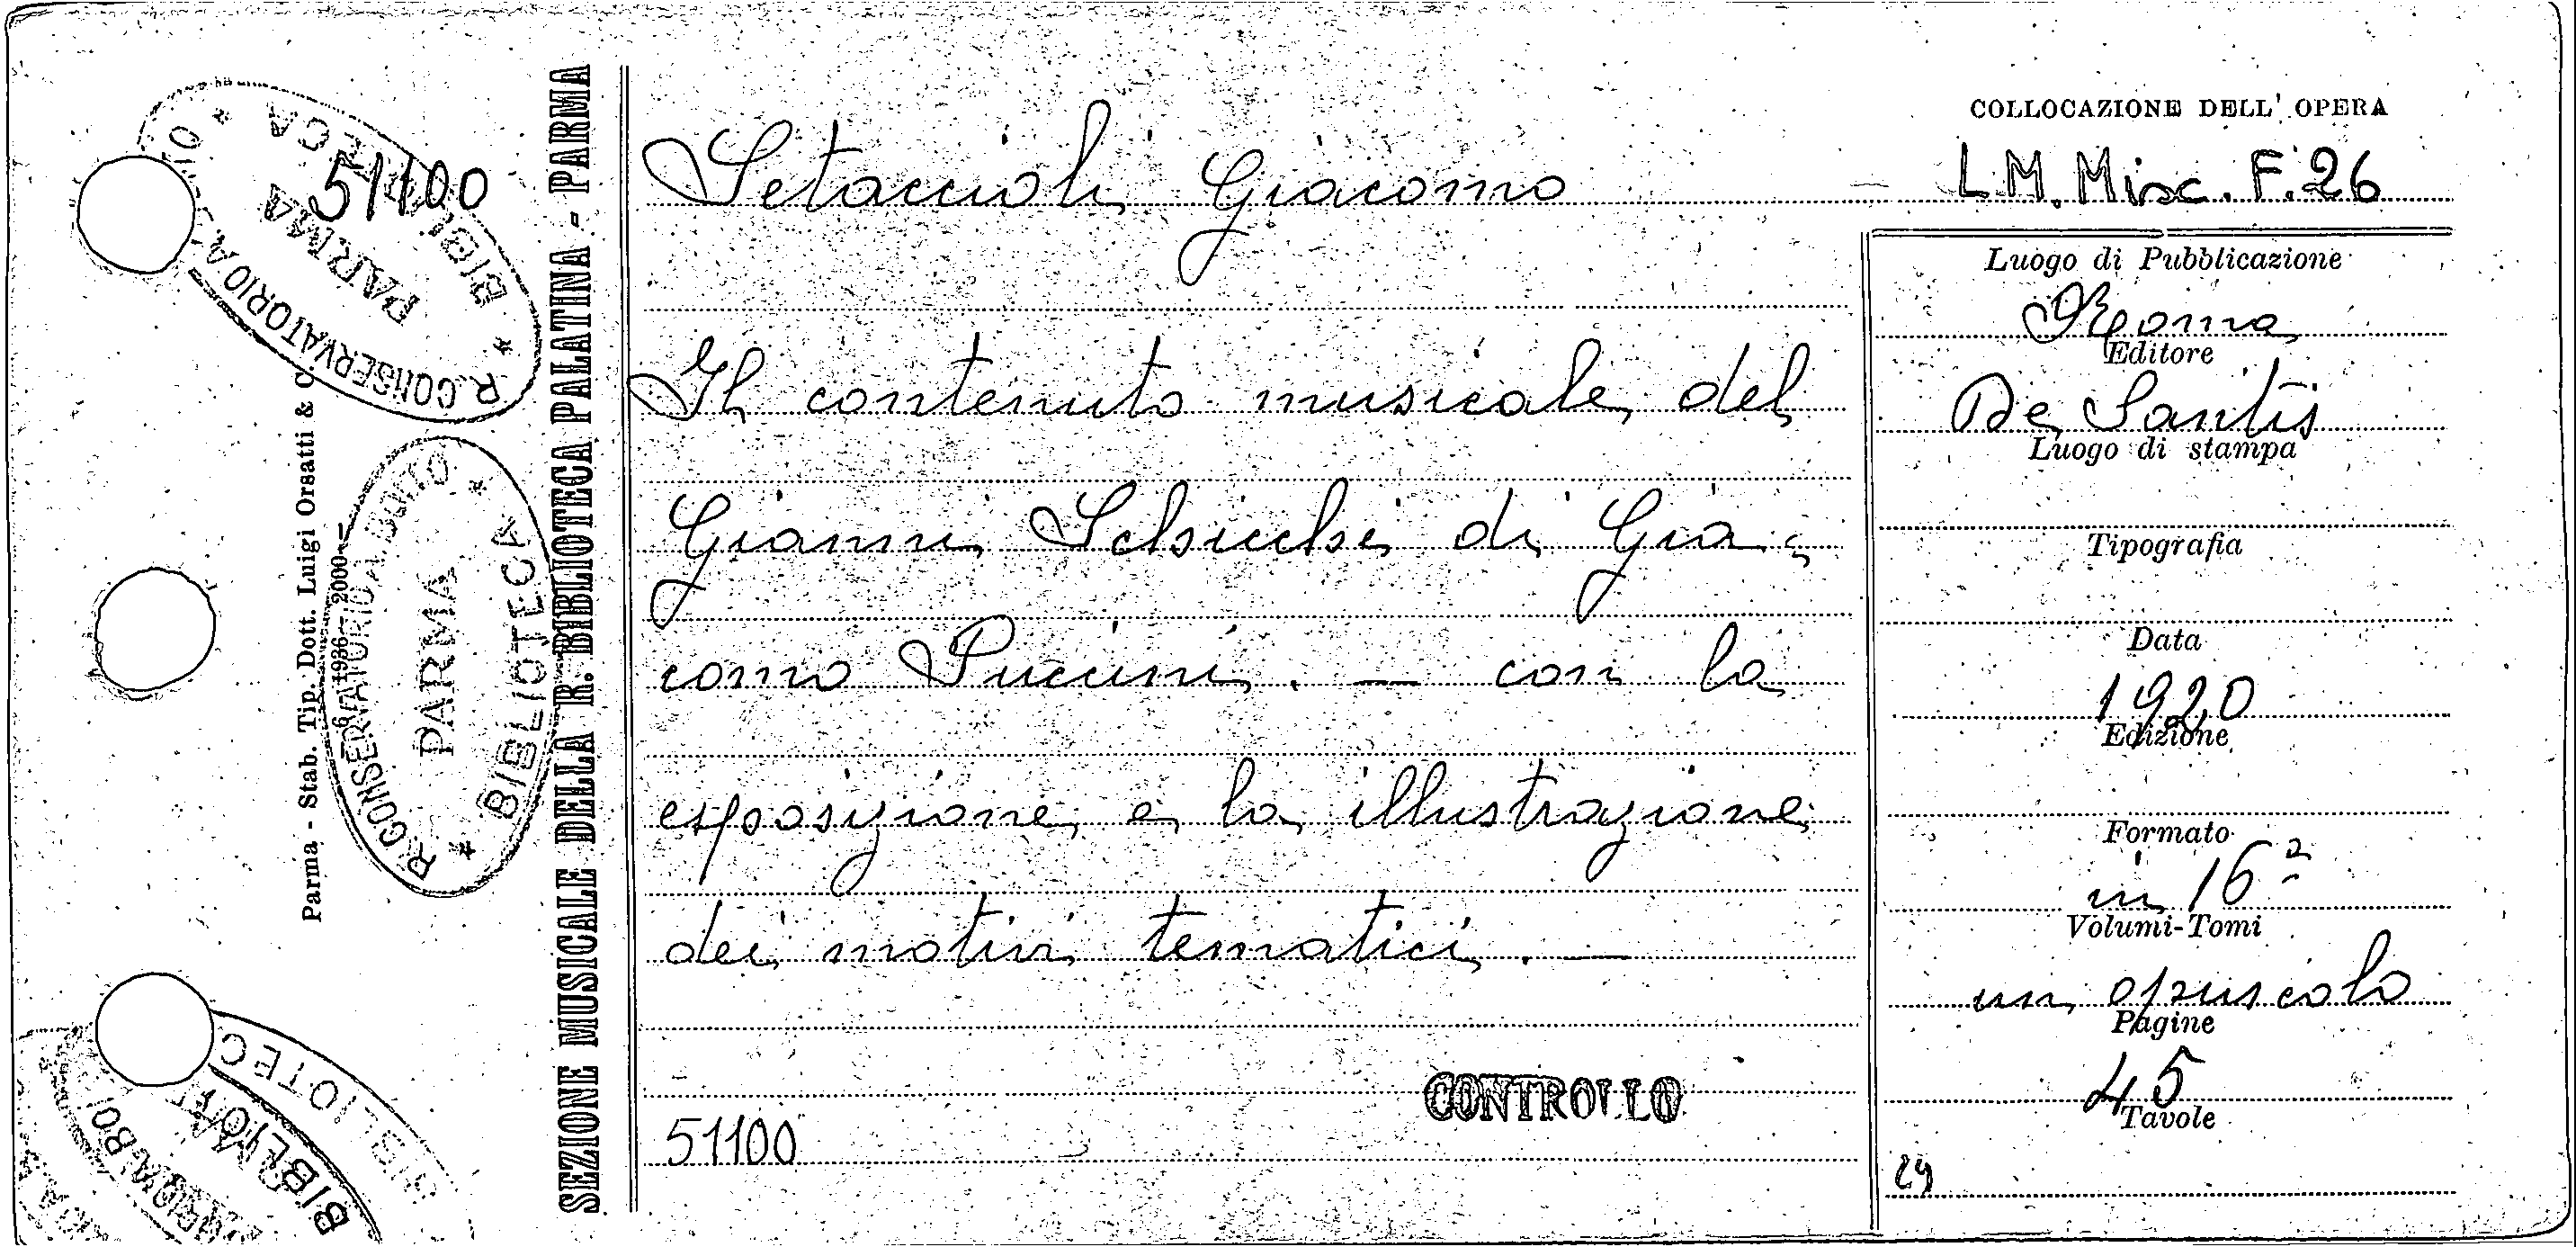 COLLOCAZIONE DELL' OPERA
L.M. Misc. F. 26
Setaccioli Giacomo
Il contenuto musicale del
Gianni Schicchi di Gia-
como Puccini. — con la
esposizione e la illustrazione
dei motivi tematici. —
CONTROLLO
51100
Luogo di Pubblicazione
Roma
Editore
De Santis
Luogo di stampa
Tipografia
Data
1920
Edizione
Formato
in 16º
Volumi-Tomi
un opuscolo
Pagine
45
Tavole
29
SEZIONE MUSICALE DELLA R. BIBLIOTECA PALATINA - PARMA
Parma - Stab. Tip. Dott. Luigi Orsatti & C
1936 — 2000
51100
R. CONSERVATORIO A. BOITO
PARMA
BIBLIOTECA
R. CONSERVATORIO A. BOITO
PARMA
BIBLIOTECA
BIBLIOTEC